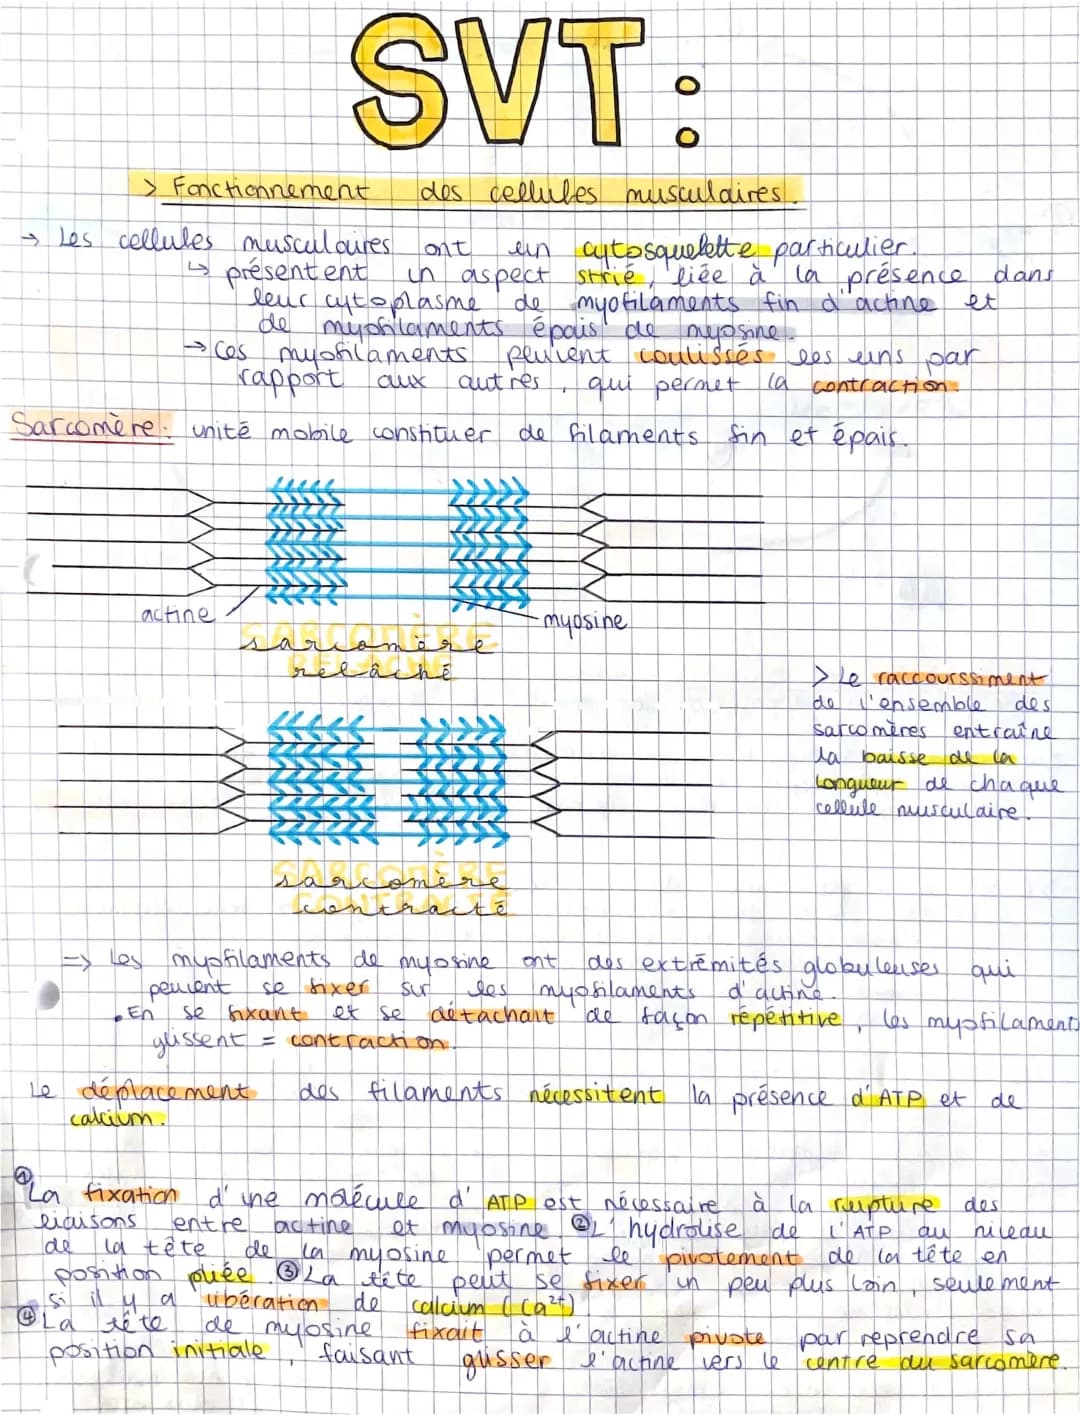 SVT:
> Fonctionnement des cellules musculaires.
→ Les cellules musculaires ont un cytosquelette particulier.
↳ présentent un aspect strié, liée à la présence dans
leur cytoplasme de myofilaments fin d'actine et
de myofilaments épais de myosine.
→ Ces myofilaments peuvent coulissés les uns par
rapport aux autres, qui permet la contraction.
Sarcomère: unité mobile constituer de filaments fin et épais.
actine
myosine
sarcomère
relâché
> Le raccourssiment
de l'ensemble des
sarcomères entraîne
la baisse de la
longueur de chaque
cellule musculaire.
sarcomère
contracté
=> Les myofilaments de myosine ont des extrémités globuleuses qui
peuvent se fixer sur les myofilaments d'actine.
• En se fixant et se détachait de façon répétitive, les myofilaments
glissent = contraction.
Le déplacement des filaments nécessitent la présence d'ATP et de
calcium.
① La fixation d'une molécule d'ATP est nécessaire à la rupture des
liaisons entre actine et myosine. ② L'hydrolise de l'ATP au niveau
de la tête de la myosine permet le pivotement de la tête en
position pliée. ③ La tête peut se fixer un peu plus loin, seulement
si il y a libération de calcium (Ca²⁺)
④ La tête de myosine fixait à l'actine pivote par reprendre sa
position initiale, faisant glisser l'actine vers le centre du sarcomère.